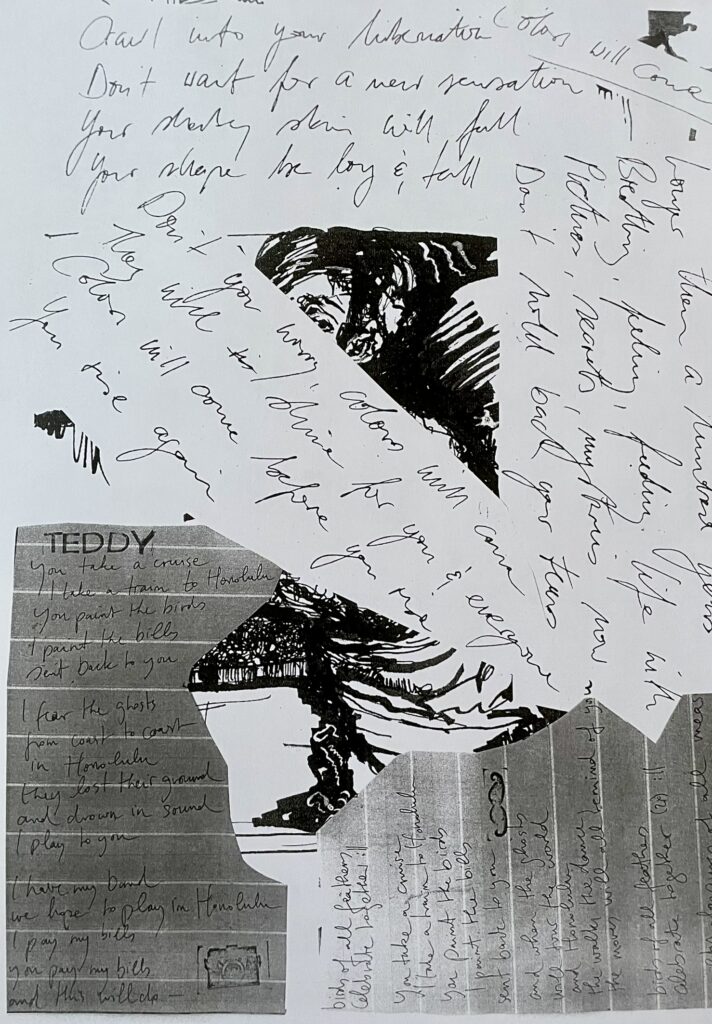 Crawl into your hibernation
Don't wait for a new sensation
Your shaky skin will fall
Your shape be long & tall
Colors will come
Longer then a hundred years
Breathing, feeling, feeding life with
Pictures, secrets, mysteries now
Don't hold back your tears
Don't you worry, colors will come
They will shine for you & everyone
Colors will come before you rise
You rise again
TEDDY
You take a cruise
I take a train to Honolulu
you paint the birds
I paint the bills
sent back to you
I fear the ghosts
from coast to coast
in Honolulu
they lost their ground
and drown in sound
I play to you
I have my band
we hope to play in Honolulu
I pay my bills
you pay my bills
and this will do
birds of all feathers
celebrate together :||
You take a cruise
I take a train to Honolulu
you paint the birds
I paint the bills
sent back to you
and when the ghosts
will tour the world
and Honolulu
the walks the dances
the moves will all remind of you
birds of all feathers
celebrate together :||
of all